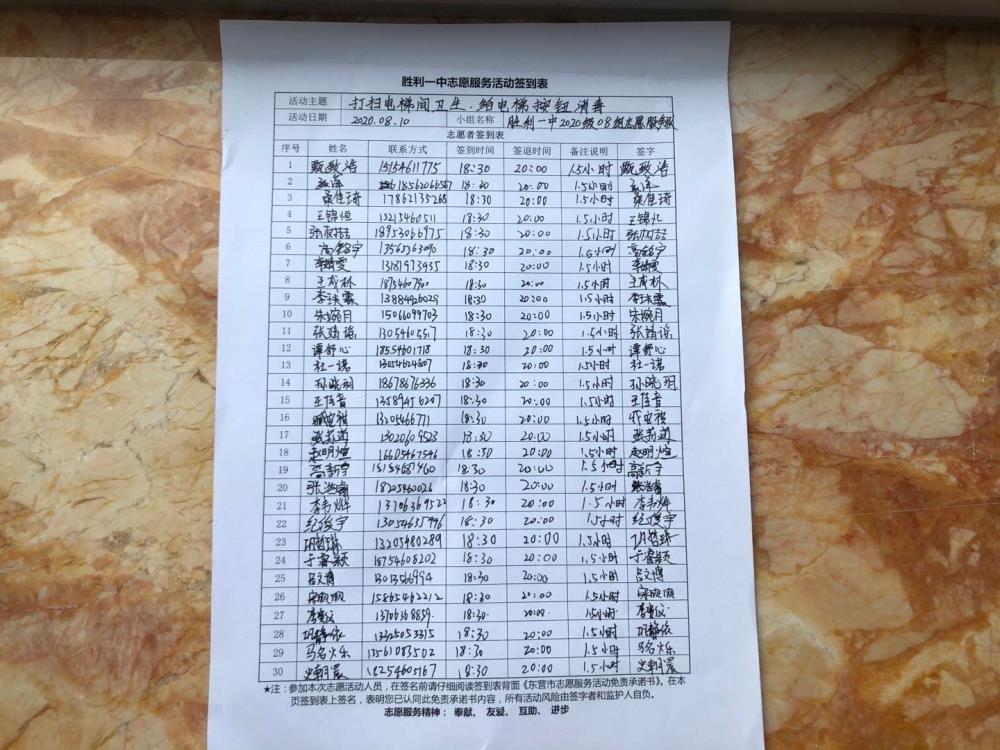 胜利一中志愿服务活动签到表
活动主题 打扫电梯间卫生.给电梯按钮消毒
活动日期 2020.08.10 小组名称 胜利一中2020级08组志愿服务队
志愿者签到表
序号 姓名 联系方式 签到时间 签退时间 备注说明 签字
1 甄致涛 15154611775 18:30 20:00 1.5小时 甄致涛
2 18:30 20:00 1.5小时
3 桑佳琦 17862135268 18:30 20:00 1.5小时 桑佳琦
4 王锦恒 13215460511 18:30 20:00 1.5小时
5 18953066975 18:30 20:00 1.5小时
6 高铭宇 18:30 20:00 1.5小时 高铭宇
7 李晴雯 13181973935 18:30 20:00 1.5小时
8 王成林 18:30 20:00 1.5小时 王成林
9 13884926029 18:30 20:00 1.5小时
10 宋婉月 15066099703 18:30 20:00 1.5小时 宋婉月
11 张靖瑶 13054605517 18:30 20:00 1.5小时 张靖瑶
12 谭舒心 18554601718 18:30 20:00 1.5小时 谭舒心
13 杜一诺 13054624807 18:30 20:00 1.5小时 杜一诺
14 孙晓玥 18678676336 18:30 20:00 1.5小时 孙晓玥
15 王佳音 18:30 20:00 1.5小时 王佳音
16 18:30 20:00 1.5小时
17 13020609523 18:30 20:00 1.5小时
18 赵明煊 16605467546 18:30 20:00 1.5小时 赵明煊
19 高新宇 18:30 20:00 1.5小时 高新宇
20 张浩睿 18205460026 18:30 20:00 1.5小时 张浩睿
21 李韦烨 13706369522 18:30 20:00 1.5小时 李韦烨
22 纪俊宇 13054635996 18:30 20:00 1.5小时 纪俊宇
23 13205480289 18:30 20:00 1.5小时
24 于睿颖 18754608202 18:30 20:00 1.5小时 于睿颖
25 吕文博 18:30 20:00 1.5小时 吕文博
26 15865462212 18:30 20:00 1.5小时
27 18:30 20:00 1.5小时
28 胡静依 13325053315 18:30 20:00 1.5小时 胡静依
29 马名火乐 13561083502 18:30 20:00 1.5小时 马名火乐
30 18254605167 18:30 20:00 1.5小时
★注：参加本次志愿活动人员，在签名前请仔细阅读签到表背面《东营市志愿服务活动免责承诺书》。在本
页签到表上签名，表明您已认同此免责承诺书内容，所有活动风险由签字者和监护人自负。
志愿服务精神：奉献、友爱、互助、进步